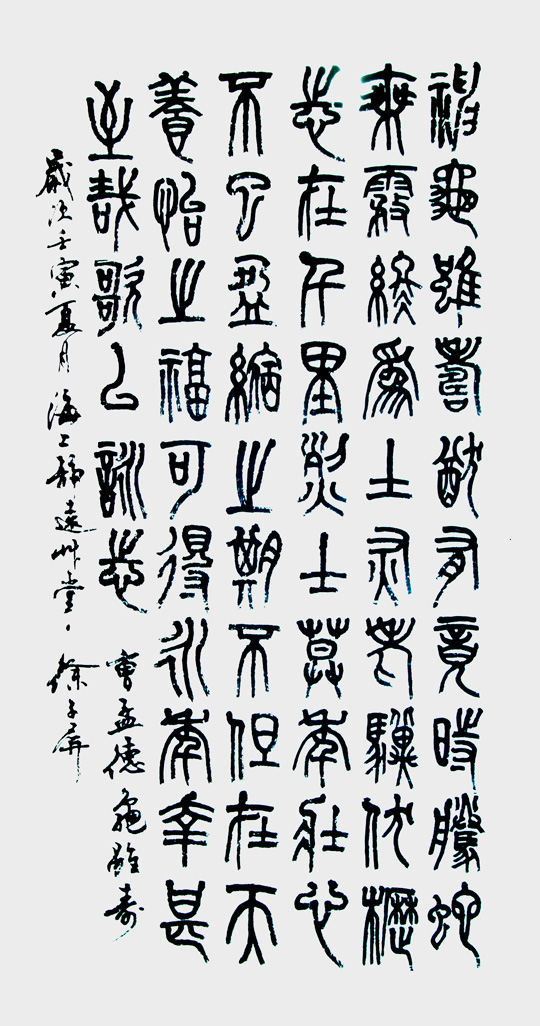 神龜雖壽猶有竟時騰蛇
乘霧終為土灰老驥伏櫪
志在千里烈士莫年壯心
不已盈縮之期不但在天
養怡之福可得永年幸甚
至哉歌以詠志 曹孟德龜雖壽
歲次壬寅夏月海上靜遠艸堂徐子屏